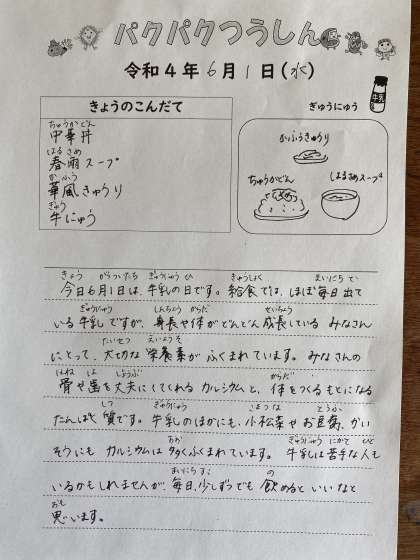 パクパクつうしん
令和4年6月1日(水)
きょうのこんだて
ちゅうかどん
中華丼
はるさめ
春雨スープ
かふう
華風きゅうり
ぎゅう
牛にゅう
ぎゅうにゅう
牛乳
かふうきゅうり
ちゅうかどん
はるさめスープ
きょう がつついたち ぎゅうにゅう ひ きゅうしょく まいにち で
今日6月1日は、牛乳の日です。給食では、ほぼ毎日出て
ぎゅうにゅう しんちょう からだ せいちょう
いる牛乳ですが、身長や体がどんどん成長しているみなさん
たいせつ えいようそ
にとって、大切な栄養素がふくまれています。みなさんの
ほね は じょうぶ からだ
骨や歯を丈夫にしてくれるカルシウムと、体をつくるもとになる
しつ ぎゅうにゅう こまつな とうふ
たんぱく質です。牛乳のほかにも、小松菜やお豆腐、かい
おお ぎゅうにゅう にがて ひと
そうにもカルシウムは多くふくまれています。牛乳は苦手な人も
まいにち すこ の
いるかもしれませんが、毎日、少しずつでも飲めるといいなと
おも
思います。